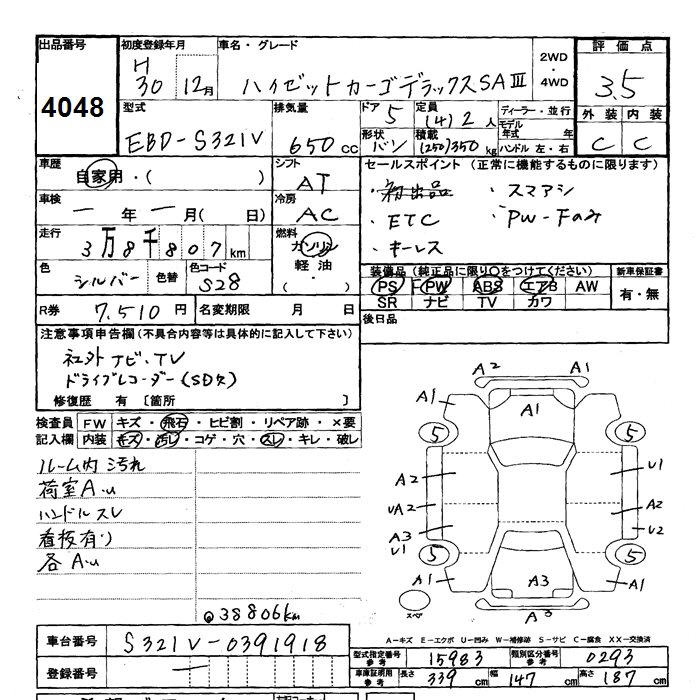 出品番号
4048
初度登録年月
H
30 12月
車名・グレード
ハイゼットカーゴデラックスSAⅢ
2WD
・
4WD
評価点
3.5
外装 内装
C C
型式
EBD-S321V
排気量
650cc
ドア
5
形状
バン
定員
(4)2人
積載
(250)350kg
ディーラー・並行
モデル
年式 年
ハンドル 左・右
車歴
自家用・( )
シフト
AT
車検
ー年ー月( 日)
冷房
AC
走行
3万8千807km
燃料
ガソリン
軽油・
( ・ )
色
シルバー
色替
色コード
S28
R券
7,510円
名変期限 月 日
セールスポイント(正常に機能するものに限ります)
・初出品 ・スマアシ
・ETC ・PW-Fのみ
・キーレス
装備品(純正品に限り○をつけてください)
PS PW ABS エアB AW
SR ナビ TV カワ
新車保証書
有・無
後日品
注意事項申告欄(不具合内容等は具体的に記入して下さい)
社外ナビ・TV
ドライブレコーダー(SD欠)
修復歴 有 〔箇所 〕
検査員
記入欄
FW キズ・飛石・ヒビ割・リペア跡・×要
内装 キズ・汚レ・コゲ・穴・スレ・キレ・破レ
ルーム内汚れ
荷室A.u
ハンドルスレ
看板有り
各A.u
38806km
A2 A1
A1 A1 A1
5 5
A2 U1
UA2 A2
A3 U2
U1
5 5
A1 A3 A1
スペア
A3
A-キズ E-エクボ U-凹み W-補修跡 S-サビ C-腐食 XX-交換済
車台番号
S321V-0391918
登録番号
ー
型式指定番号
参考
15983
類別区分番号
参考
0293
車庫証明用
参考
長さ
339cm
幅
147cm
高さ
187cm